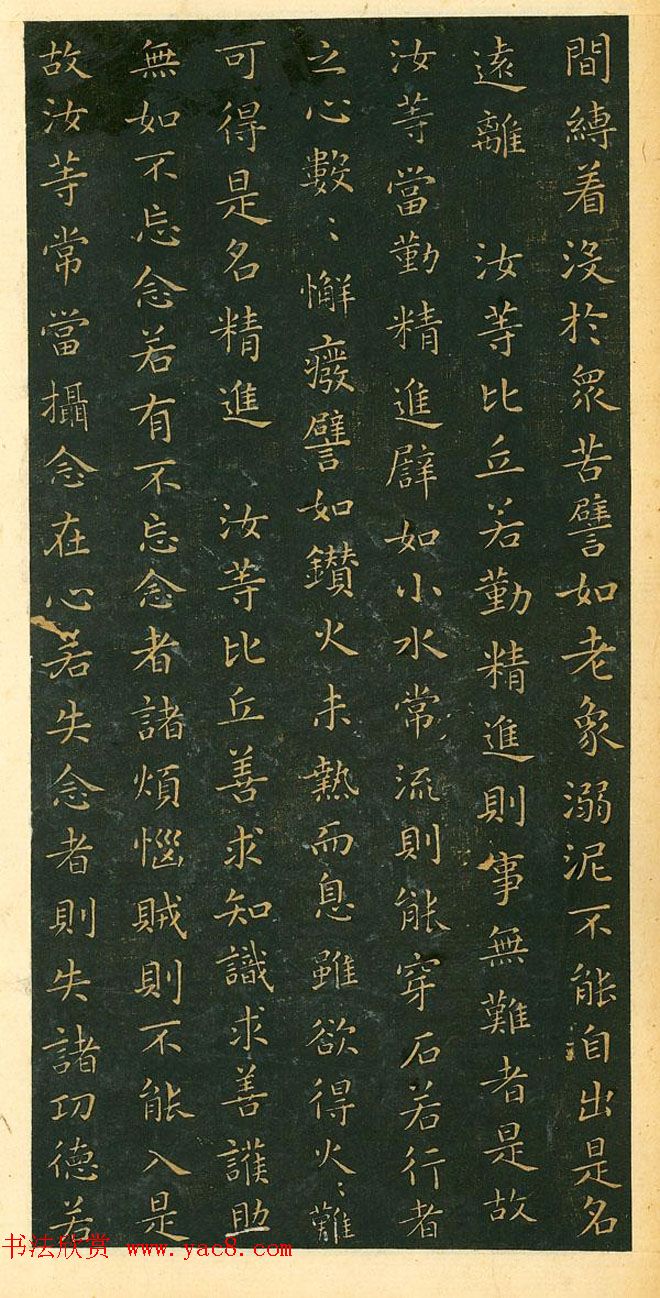 間縳着没於衆苦譬如老象溺泥不能自出是名
遠離　汝等比丘若勤精進則事無難者是故
汝等當勤精進譬如小水常流則能穿石若行者
之心數〻懈癈譬如鑽火未熱而息雖欲得火〻難
可得是名精進　汝等比丘善求知識求善護助
無如不忘念若有不忘念者諸煩惱賊則不能入是
故汝等常當攝念在心若失念者則失諸功德若
书法欣赏 www.yac8.com